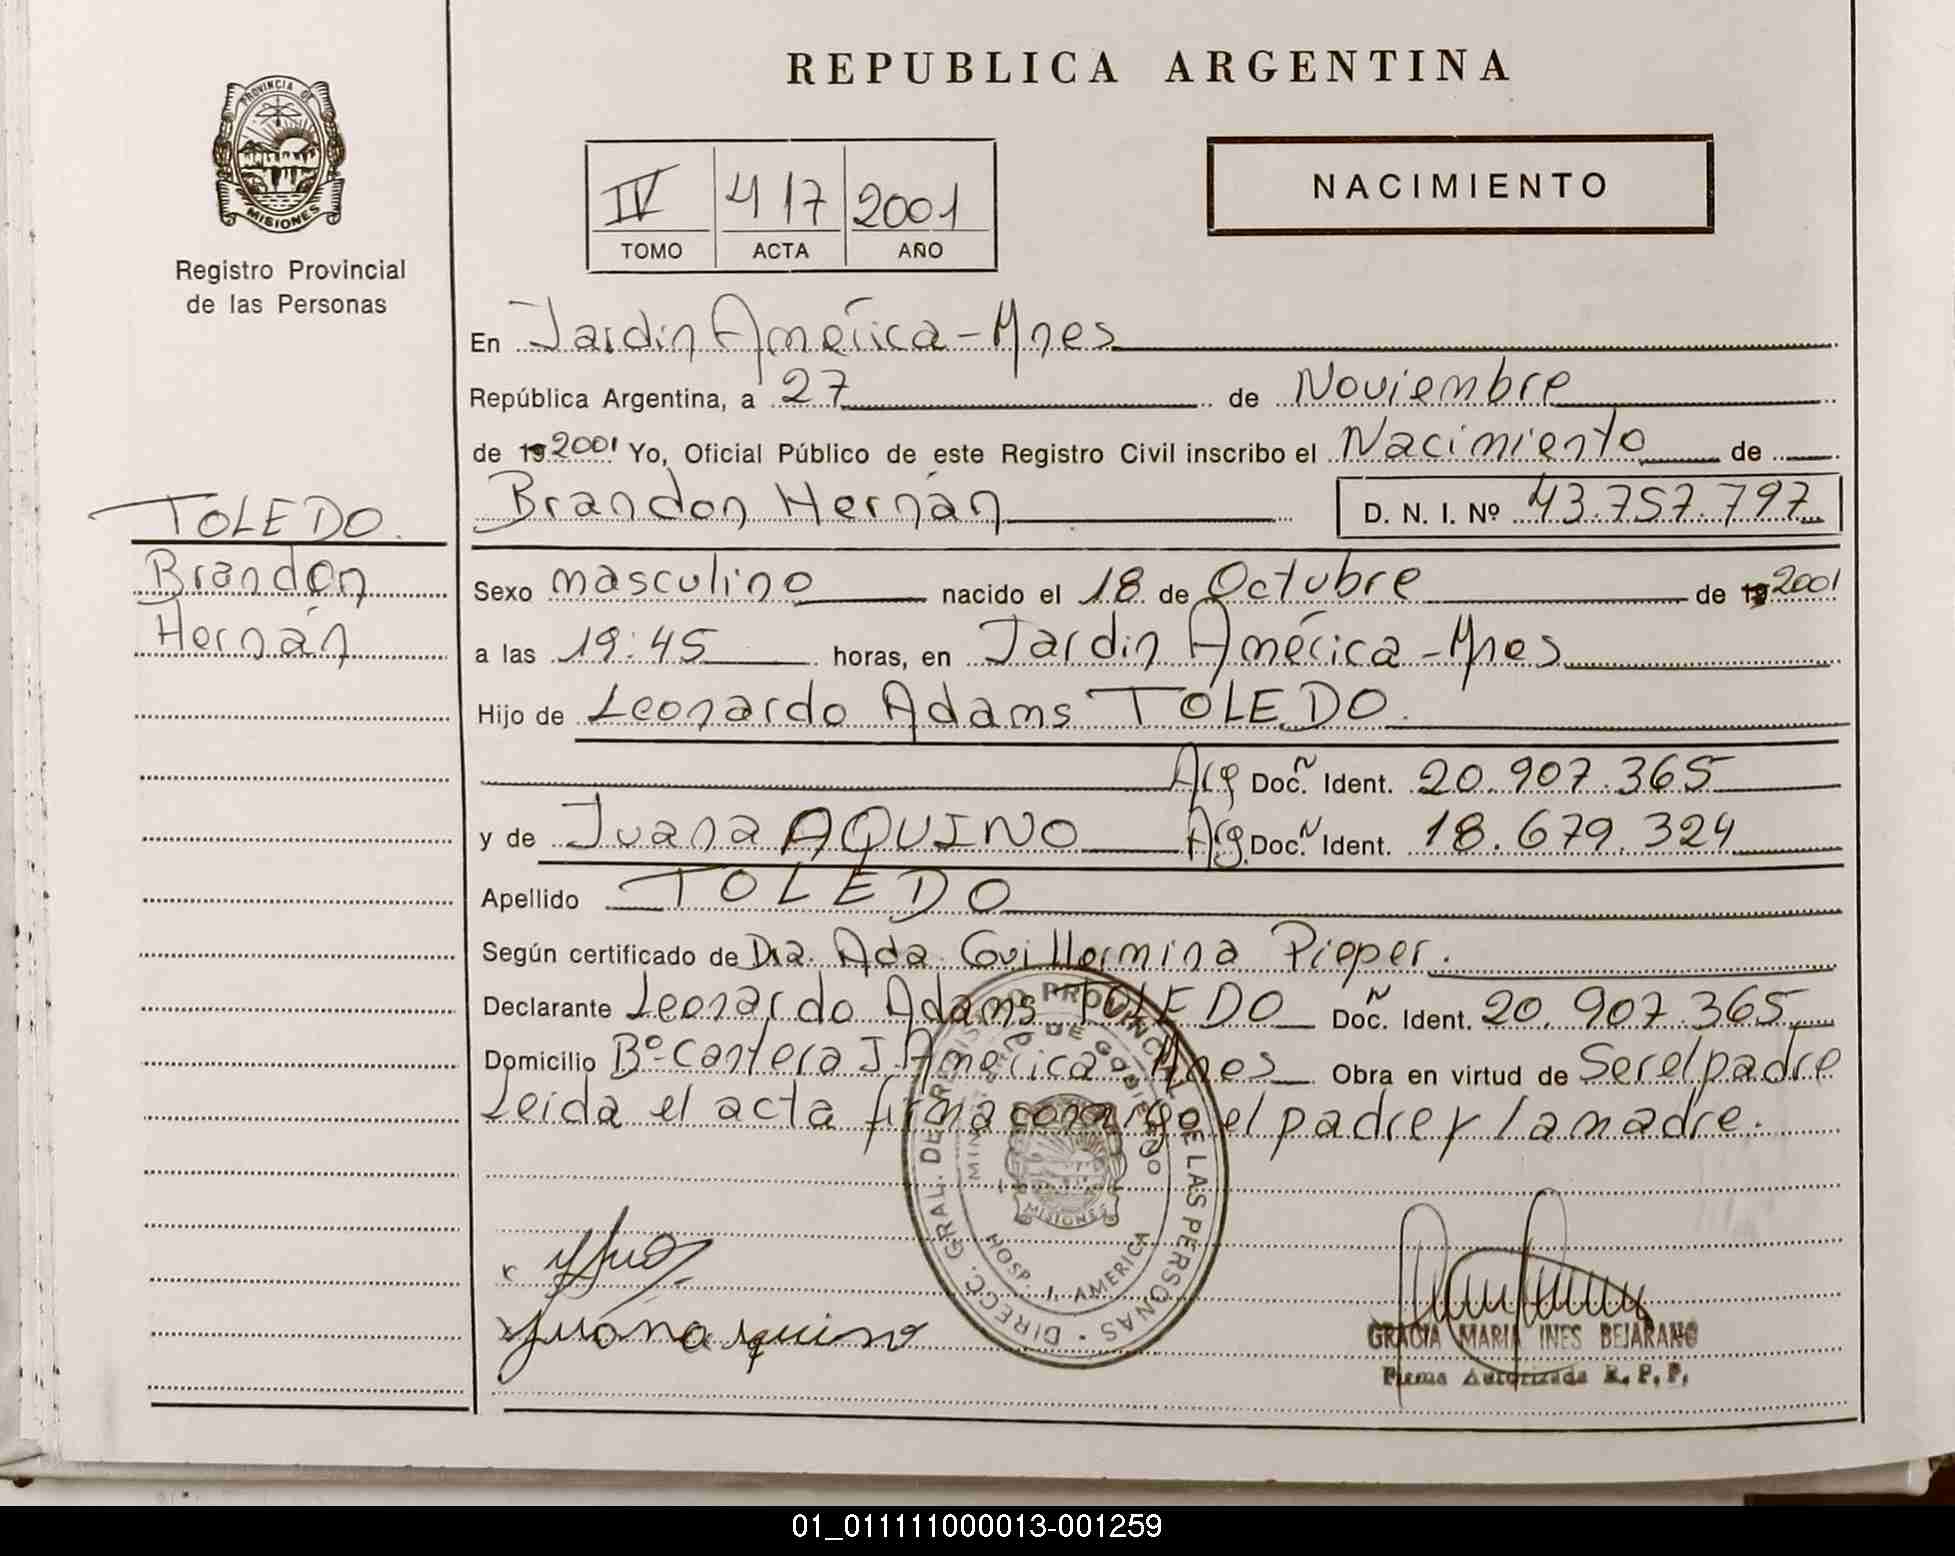 REPUBLICA ARGENTINA
PROVINCIA DE
MISIONES
Registro Provincial
de las Personas
IV 417 2001
TOMO ACTA AÑO
NACIMIENTO
En Jardin América-Mnes
República Argentina, a 27 de Noviembre
de 19 2001 Yo, Oficial Público de este Registro Civil inscribo el Nacimiento de
Brandon Hernán D. N. I. Nº 43.757.797
TOLEDO.
Brandon
Hernán
Sexo masculino nacido el 18 de Octubre de 19 2001
a las 19:45 horas, en Jardin América-Mnes
Hijo de Leonardo Adams TOLEDO.
Arg Doc. N Ident. 20.907.365
y de Juana AQUINO Arg. Doc. N Ident. 18.679.324
Apellido TOLEDO
Según certificado de Dra. Ada Guillermina Pieper.
Declarante Leonardo Adams TOLEDO Doc. N Ident. 20.907.365
Domicilio Bº-Cantera J. America-Mnes Obra en virtud de Ser el padre
Leida el acta firma conmigo el padre y la madre.
DIRECC. GRAL. DE REGISTRO PROVINCIAL DE LAS PERSONAS
DE GOBIERNO
MISIONES
HOSP. J. AMERICA
Juana aquino
GRACIA MARIA INES BEJARANO
Firma Autorizada R. P. P.
01_011111000013-001259